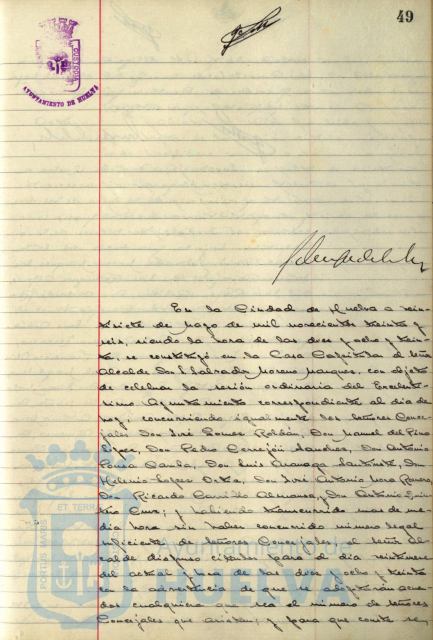 49
AYUNTAMIENTO DE HUELVA
En la Ciudad de Huelva a vein-
tisiete de mayo de mil novecientos treinta y
seis, siendo la hora de las doce y ocho y trein-
ta, se constituyó en la Casa Capitular el señor
Alcalde Don Salvador Moreno Marquez, con objeto
de celebrar la sesión ordinaria del Excelen-
tísimo Ayuntamiento correspondiente al dia de
hoy, concurriendo igualmente los señores Conce-
jales Don José Gomez Roldán, Don Manuel del Pino
López, Don Pedro Cerrejón Sanchez, Don Antonio
Ponce Don Luis Don
Lopez Don José Antonio
Don Ricardo Garrido Don Antonio
Cruz; y habiendo transcurrido mas de me-
dia hora sin haber concurrido número legal
suficiente de señores Concejales, el señor Al-
calde dispuso citarles para el dia veintinueve
del actual y hora de las doce y ocho y treinta
con la advertencia de que se adoptarán acuer-
dos cualquiera que sea el número de señores
Concejales que asistan; y para que conste se
PORTUS MARIS ET TERRAE
Ayuntamiento de
HUELVA